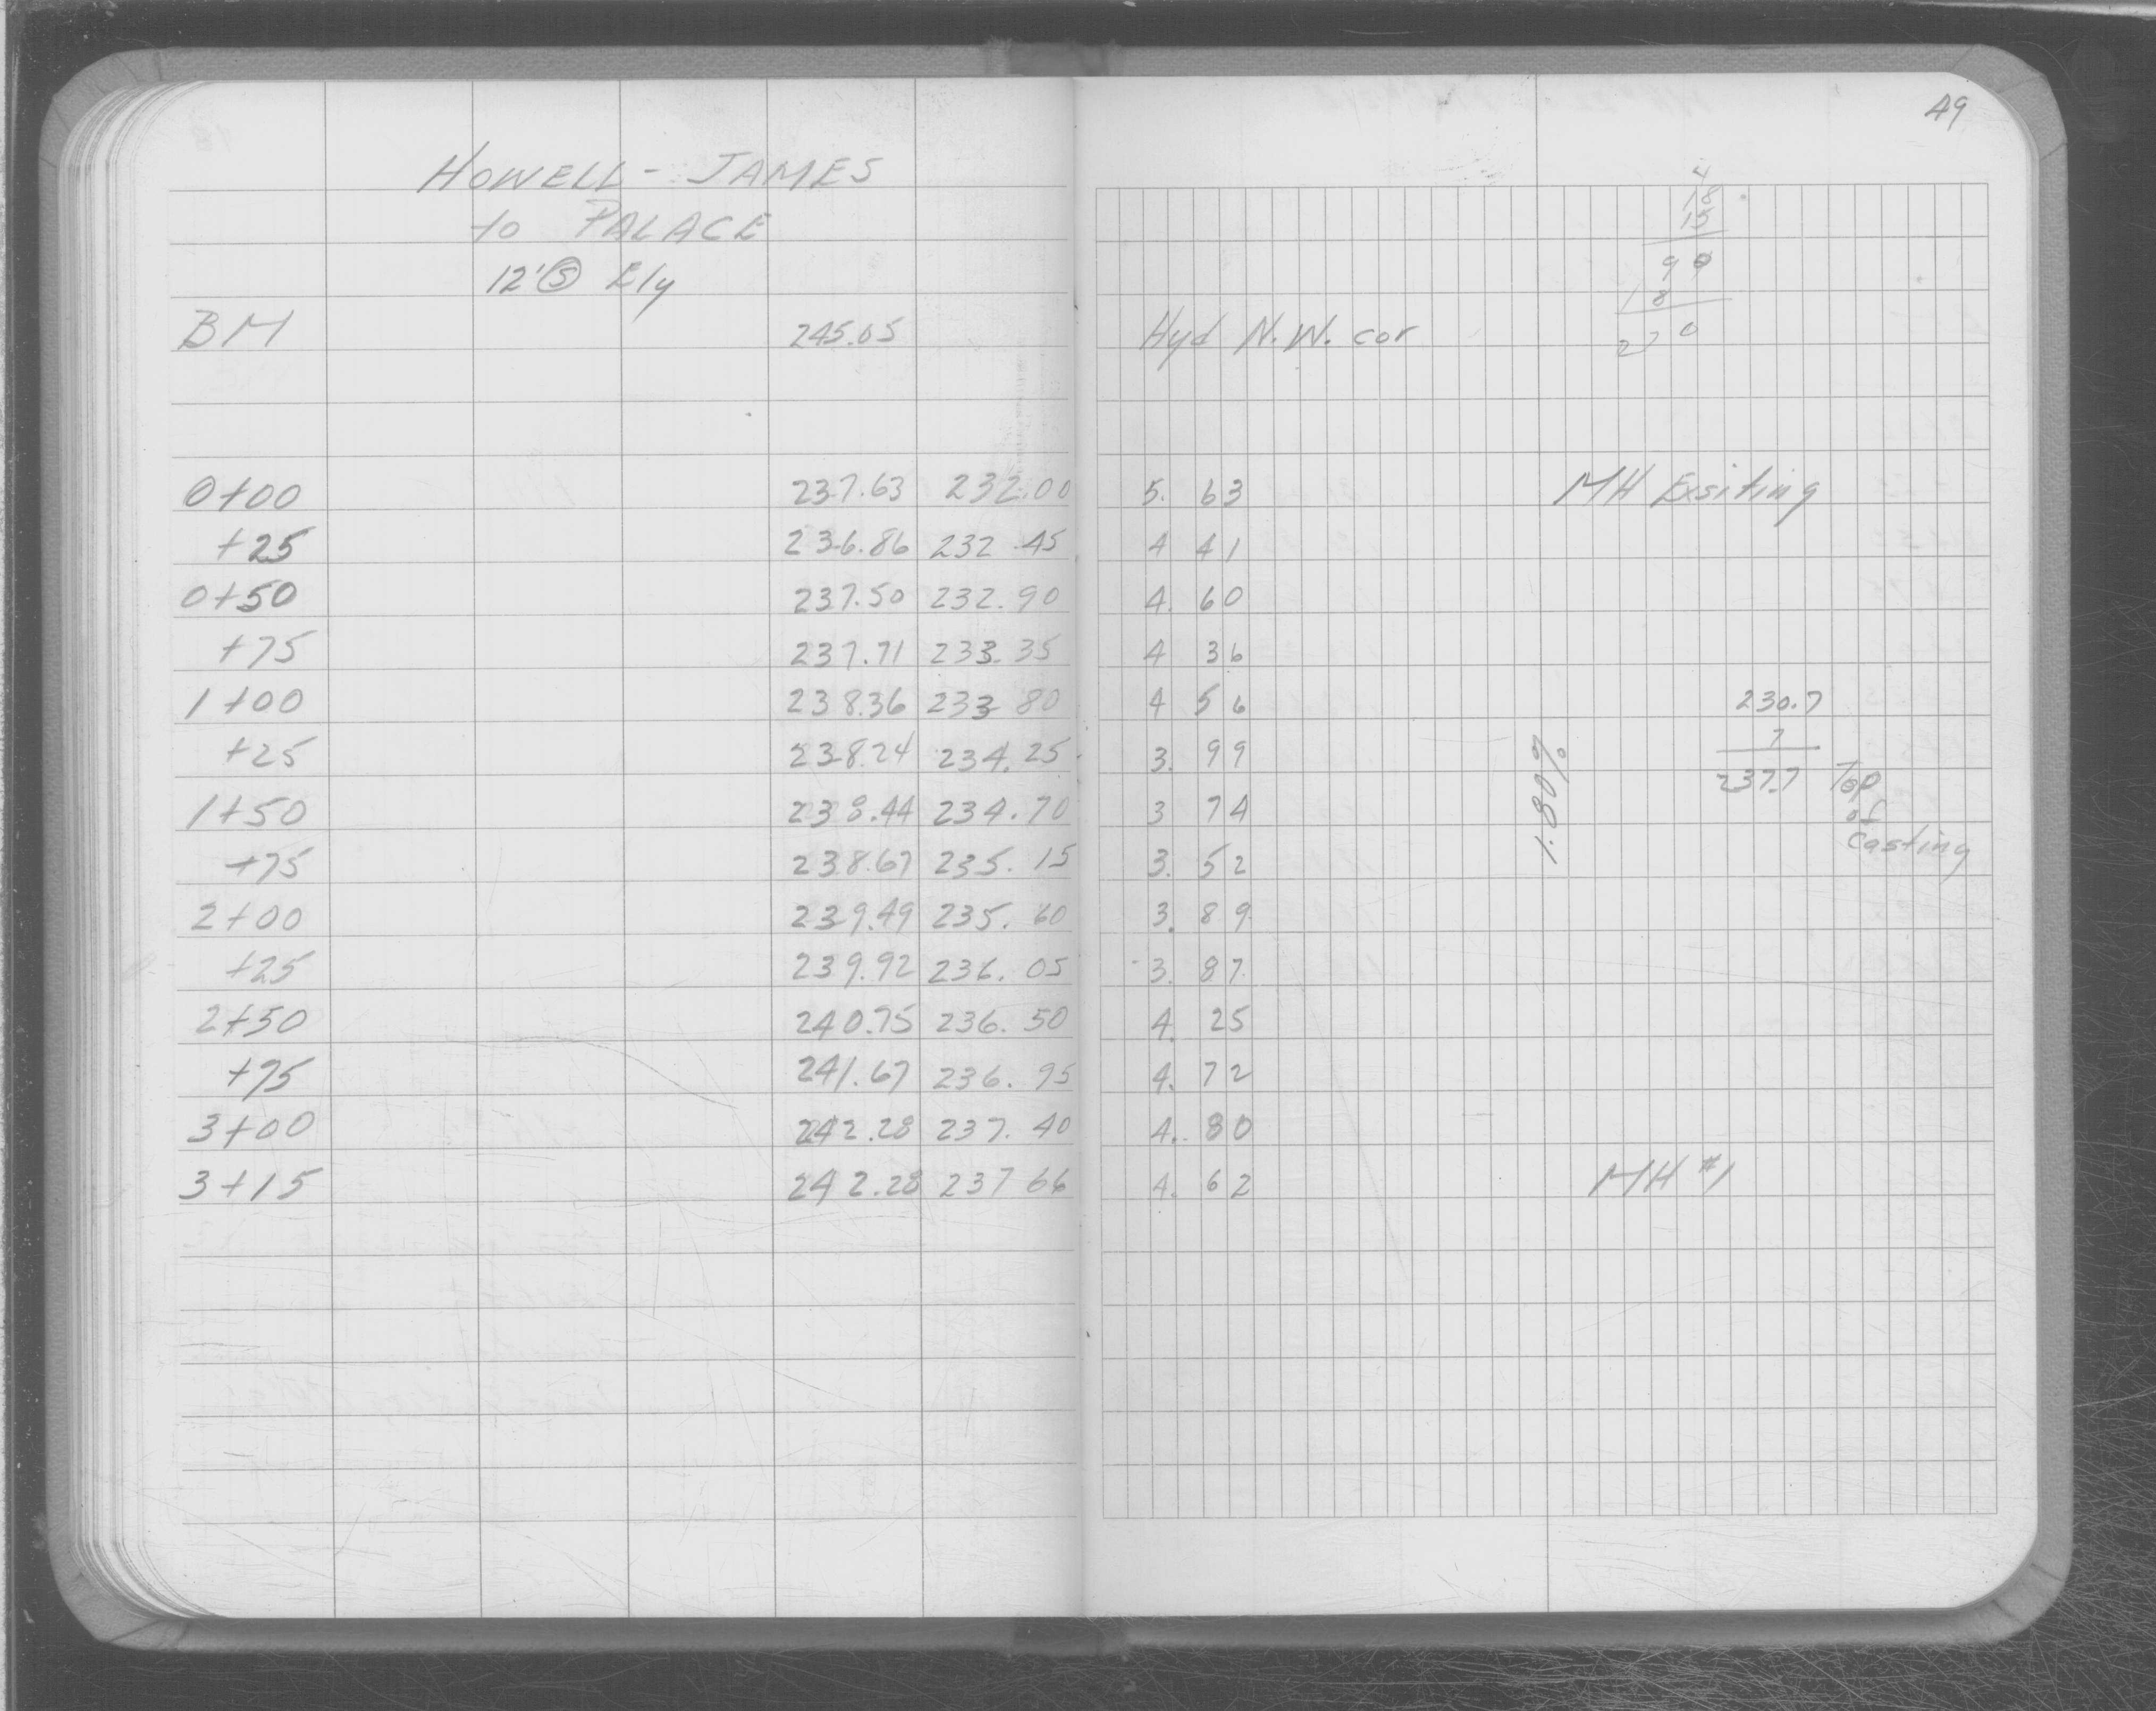 49
HOWELL - JAMES
to PALACE
12' Ⓢ Ely
BM 245.05 Hyd N.W. cor
4
18
15
90
18
270
0+00 237.63 232.00 5.63 MH Exsiting
+25 236.86 232.45 4 41
0+50 237.50 232.90 4.60
+75 237.71 233.35 4 36
1+00 238.36 233 80 4 56 230.7
+25 238.24 234.25 3.99 7
1+50 238.44 234.70 3 74 237.7 Top
of
casting
1.80%
+75 238.67 235.15 3.52
2+00 239.49 235.60 3.89
+25 239.92 236.05 3.87
2+50 240.75 236.50 4.25
+75 241.67 236.95 4.72
3+00 242.28 237.40 4.80
3+15 242.28 237 66 4.62 MH #1